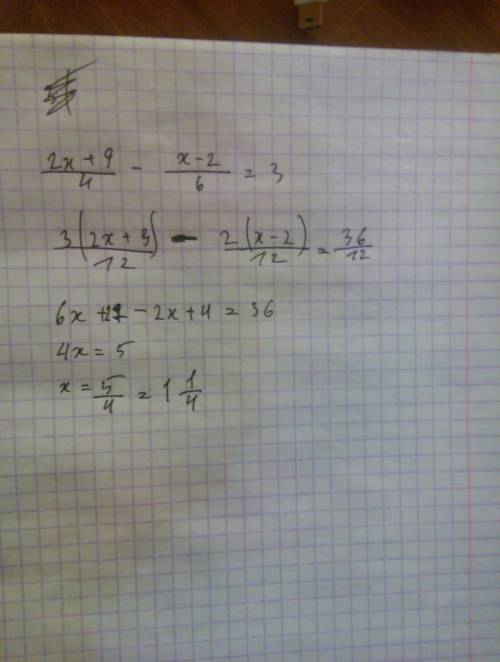 (2x+9)/4 - (x-2)/6 = 3
3(2x+9)/12 - 2(x-2)/12 = 36/12
6x + 27 - 2x + 4 = 36
4x = 5
x = 5/4 = 1 1/4